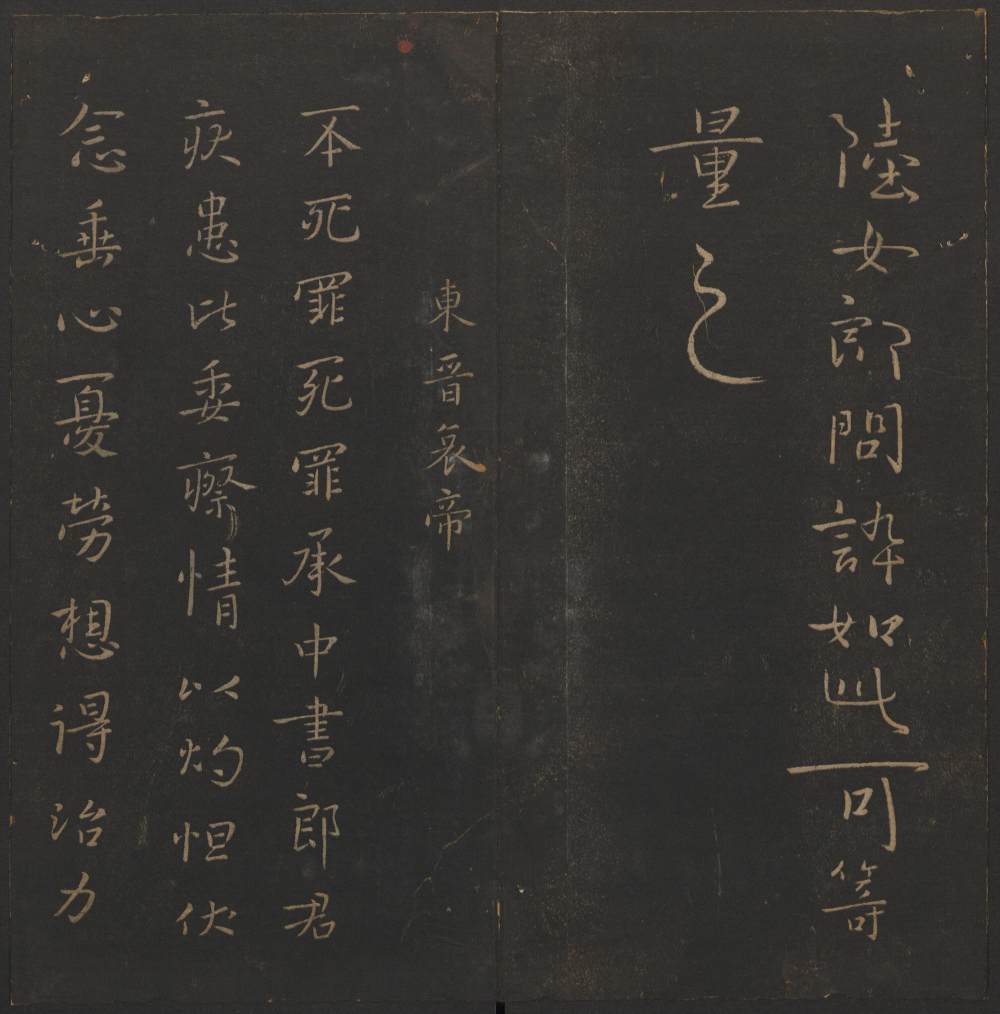 陸女郎問訊如此可等
量之
東晉哀帝
不死罪死罪承中書郎君
疾患比委療情以灼怛伏
念垂心憂勞想得治力